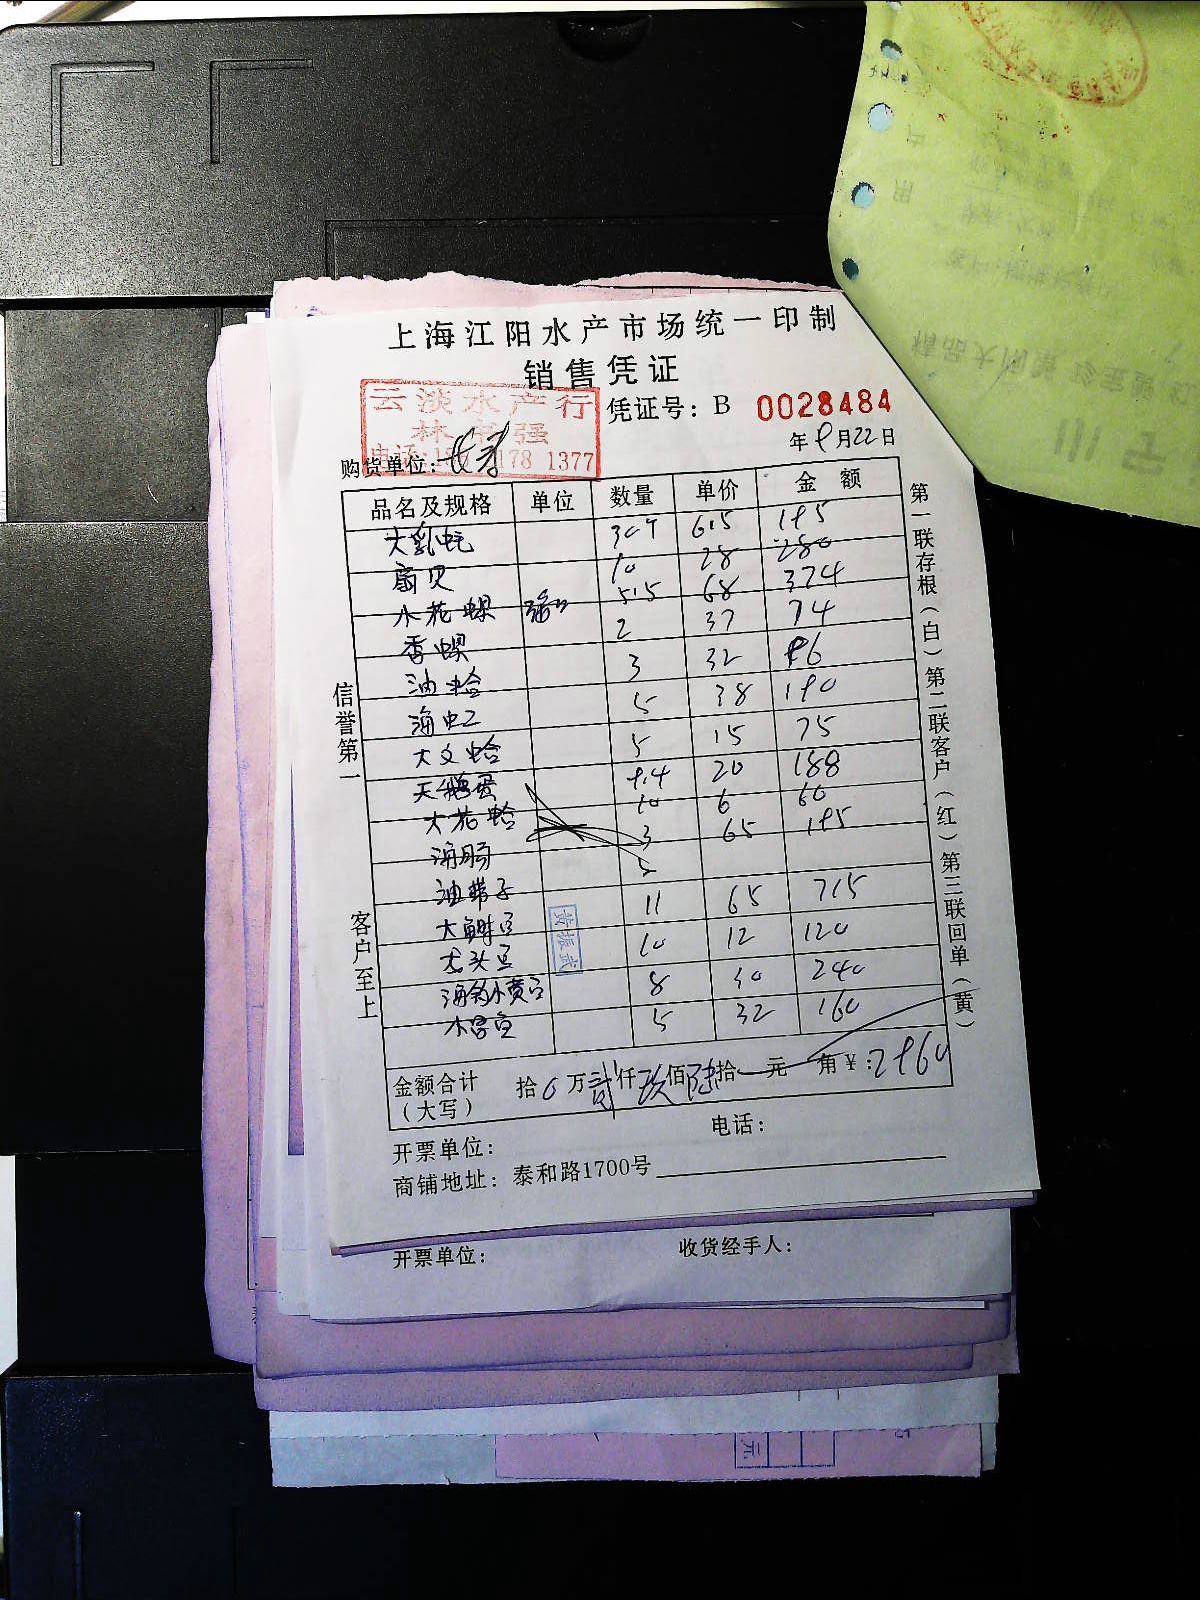 上海江阳水产市场统一印制
销售凭证
云淡水产行
凭证号：B 0028484
林 强
年9月22日
电话：1 178 1377
购货单位：
品名及规格 单位 数量 单价 金额
大乳蚝 30个 6.5 195
扇贝 10 28 280
水花螺 5.5 68 374
香螺 2 37 74
油蛤 3 32 96
海虹 5 38 190
大文蛤 5 15 75
天鹅蛋 9.4 20 188
大花蛤 10 6 60
海肠 3 65 195
油带子 5
大鲍 11 65 715
龙头 10 12 120
海 小黄 8 30 240
小 鱼 5 32 160
金额合计（大写） 拾0万贰仟玖佰陆拾元 角￥：2960
开票单位： 电话：
商铺地址：泰和路1700号
信誉第一
客户至上
第一联存根（白）第二联客户（红）第三联回单（黄）
黄振武
开票单位： 收货经手人：
元